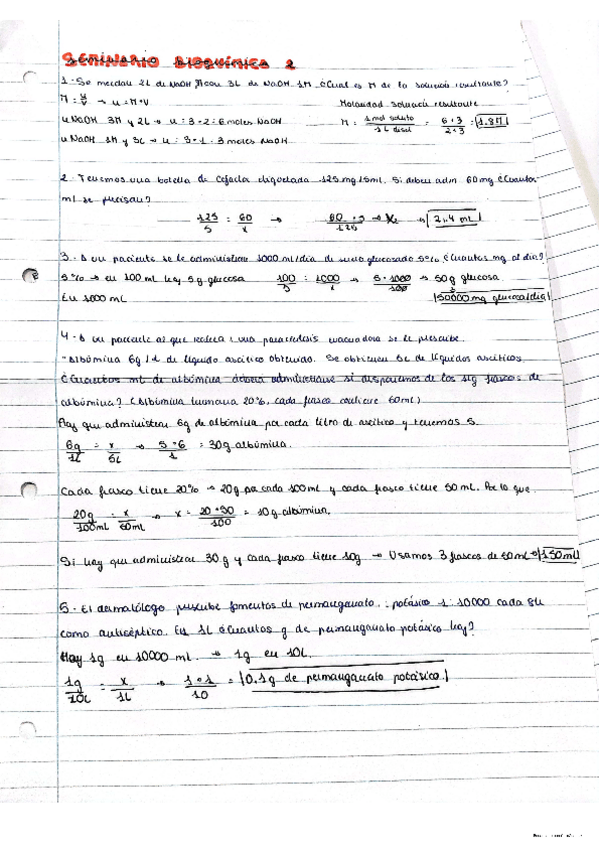 SEMINARIO BIOQUÍMICA 2
1.- Se mezclan 2L de NaOH 3M con 3L de NaOH 1M ¿Cual es M de la solución resultante?
M = n/V → n = M·V Molaridad solución resultante
n NaOH 3M y 2L → n = 3·2 = 6 moles NaOH M = 1 mol soluto / 1L disol = 6+3 / 2+3 = 1.8M
n NaOH 1M y 3L → n = 3·1 = 3 moles NaOH
2.- Tenemos una botella de etiquetada 125mg/5ml. Si deben adm. 60mg ¿Cuantos
ml se precisan?
125/5 = 60/x → 60·5/125 → x = 2,4 mL
3.- A un paciente se le administran 1000 ml/día de suero glucosado 5% ¿Cuantos mg al día?
5% → en 100 ml hay 5g glucosa 100/5 = 1000/x 5·1000/100 → 50g glucosa
En 1000 mL 50000 mg glucosa/día
4.- A un paciente al que se una paracentesis evacuadora se le prescribe.
- Albúmina 6g/L de líquido ascítico obtenido. Se obtienen 5L de líquidos ascíticos
¿Cuantos ml de albúmina deberá administrarse si disponemos de los sig frascos de
albúmina? (Albúmina humana 20%, cada frasco contiene 50ml)
Hay que administrar 6g de albúmina por cada litro de ascítico y tenemos 5.
6g/1L = x/5L → 5·6/1 = 30g albúmina.
Cada frasco tiene 20% → 20g por cada 100ml y cada frasco tiene 50 ml. Por lo que
20g/100mL = x/50mL → x = 20·50/100 = 10g albúmina.
Si hay que administrar 30g y cada frasco tiene 10g → Usamos 3 frascos de 50ml → 150ml
5.- El dermatólogo prescribe fomentos de permanganato potásico 1:10000 cada 8h
como antiséptico. En 1L ¿Cuantos g de permanganato potásico hay?
Hay 1g en 10000 ml. → 1g en 10L.
1g/10L = x/1L → 1·1/10 = 0.1g de permanganato potásico